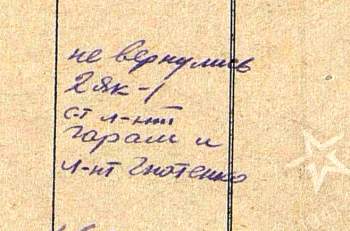 не вернулись
2 як-1
ст л-нт
Гарам и
л-нт Гнотенко